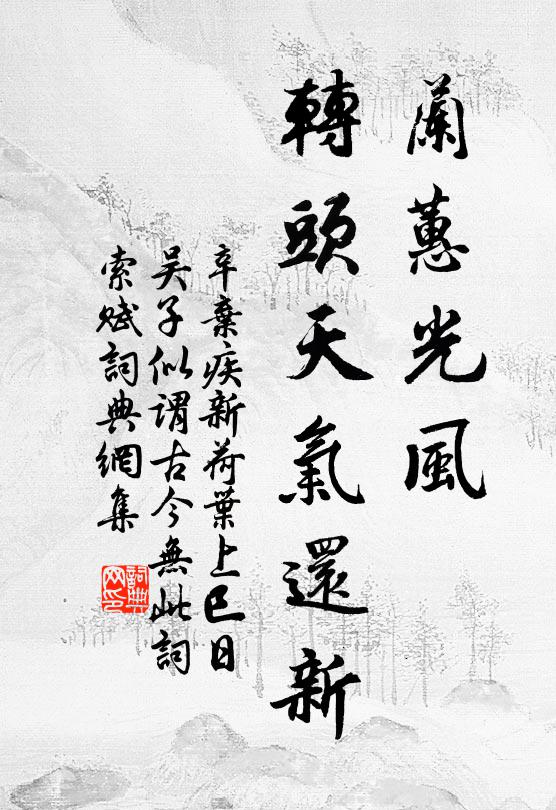 蘭蕙光風
轉頭天氣還新
辛棄疾新荷葉上巳日
吳子似謂古今無此詞
索賦詞典網集
詞典网印